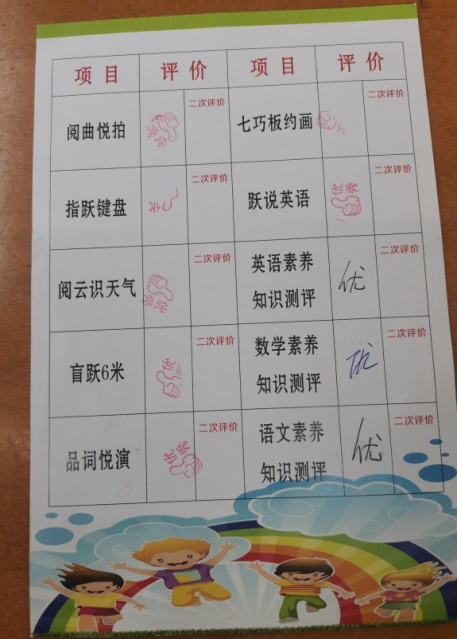 项目 评价 项目 评价
阅曲悦拍 二次评价 七巧板约画 二次评价
指跃键盘 二次评价 跃说英语 优秀 二次评价
阅云识天气 二次评价 英语素养 优 二次评价
知识测评
盲跃6米 二次评价 数学素养 优 二次评价
知识测评
品词悦演 优秀 二次评价 语文素养 优 二次评价
知识测评